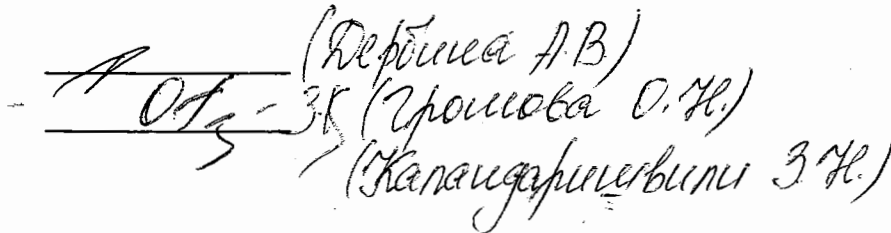 (Дербина А.В)
(Громова О.Н.)
(Капандаришвили З.Н.)